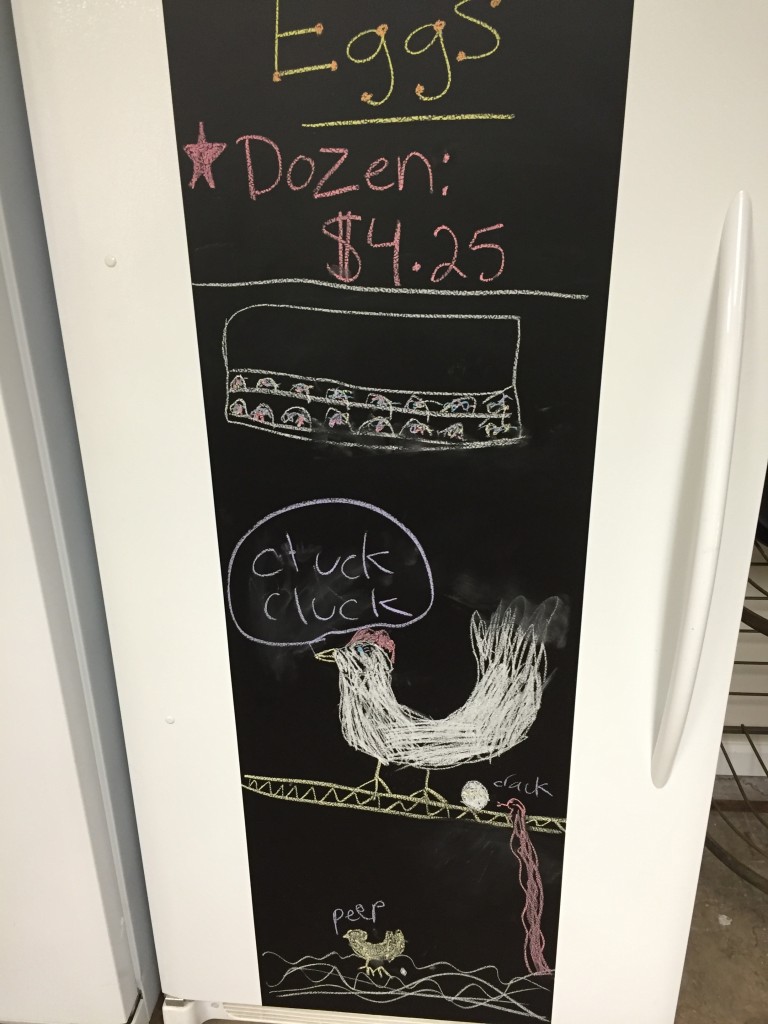 Eggs
Dozen:
$4.25
cluck
cluck
crack
peep